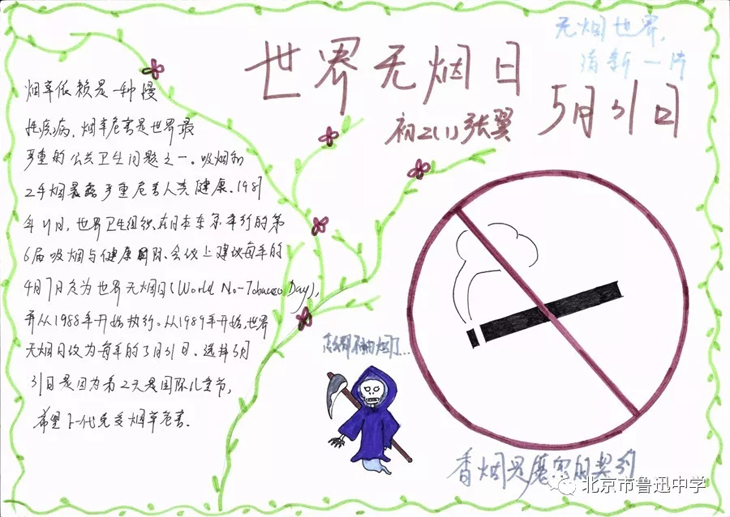 世界无烟日
无烟世界,
清新一片
5月31日
初2(1)张翼
烟草依赖是一种慢
性疾病,烟草危害是世界最
严重的公共卫生问题之一,吸烟和
二手烟暴露严重危害人类健康.1987
年11月,世界卫生组织在日本东京举行的第
6届吸烟与健康国际会议上建议每年的
4月7日定为世界无烟日(World No-Tobacco Day),
并从1988年开始执行.从1989年开始,世界
无烟日改为每年的5月31日.选择5月
31日是因为第2天是国际儿童节,
希望下一代免受烟草危害.
香烟是魔鬼的契约
北京市鲁迅中学